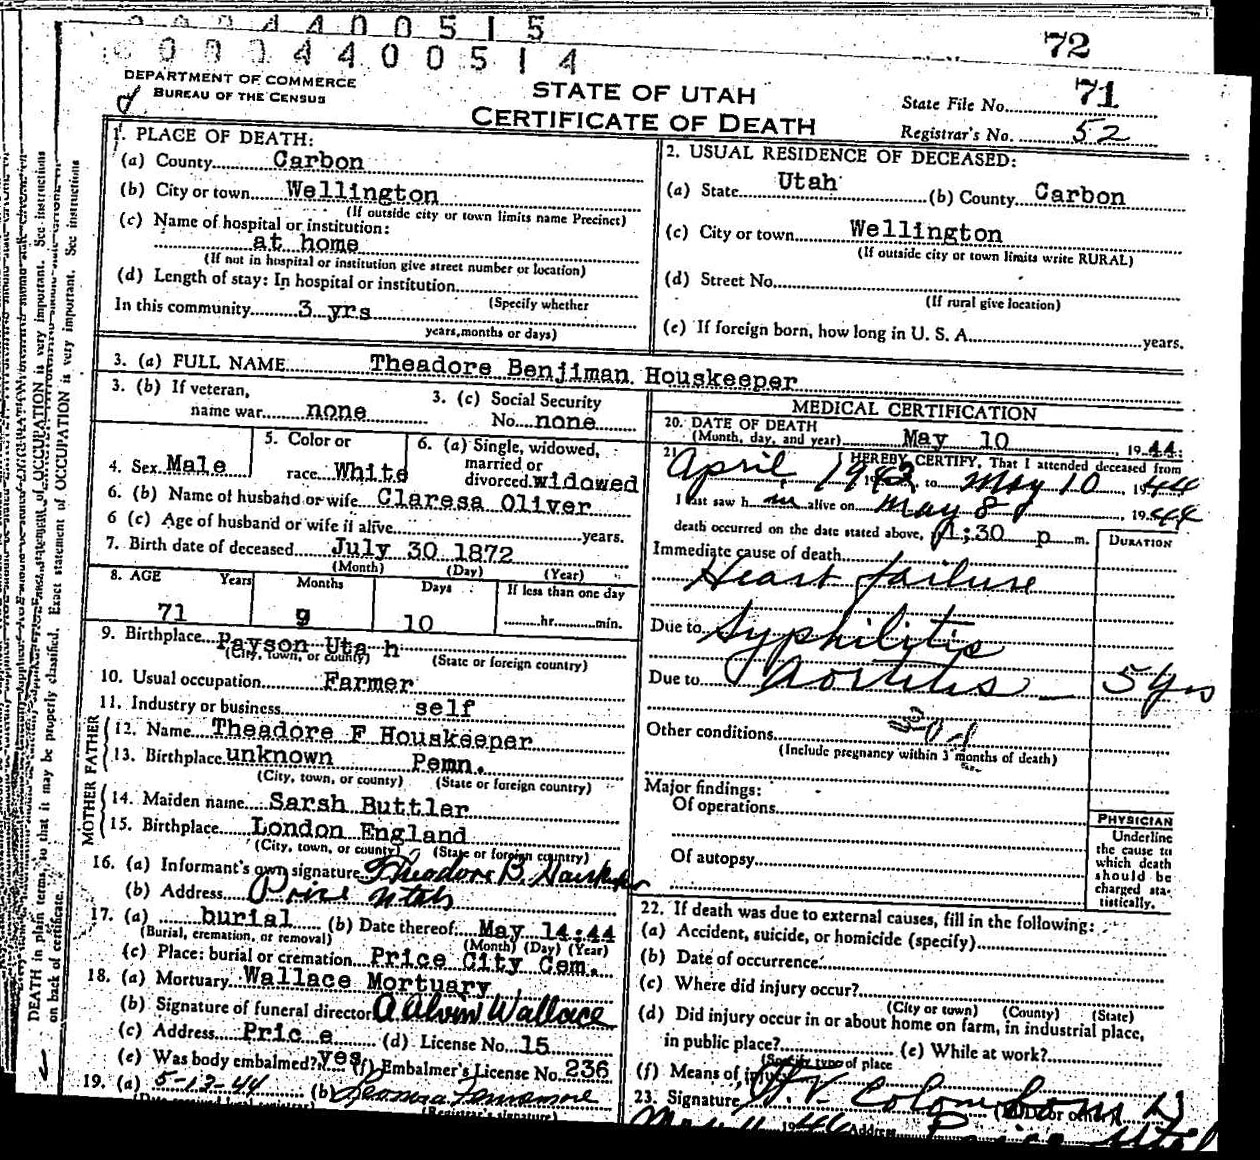 0 0 0 4 4 0 0 5 1 5
0 0 0 4 4 0 0 5 1 4
72
DEPARTMENT OF COMMERCE
BUREAU OF THE CENSUS
STATE OF UTAH
CERTIFICATE OF DEATH
State File No. 71
Registrar's No. 52
1. PLACE OF DEATH:
(a) County Carbon
(b) City or town Wellington
(If outside city or town limits name Precinct)
(c) Name of hospital or institution:
at home
(If not in hospital or institution give street number or location)
(d) Length of stay: In hospital or institution
(Specify whether
In this community 3 yrs
years, months or days)
2. USUAL RESIDENCE OF DECEASED:
(a) State Utah (b) County Carbon
(c) City or town Wellington
(If outside city or town limits write RURAL)
(d) Street No.
(If rural give location)
(e) If foreign born, how long in U. S. A. years.
3. (a) FULL NAME Theadore Benjiman Houskeeper
3. (b) If veteran, name war none
3. (c) Social Security No. none
4. Sex Male
5. Color or race White
6. (a) Single, widowed, married or divorced widowed
6. (b) Name of husband or wife Claresa Oliver
6 (c) Age of husband or wife if alive years.
7. Birth date of deceased July 30 1872
(Month) (Day) (Year)
8. AGE Years Months Days If less than one day
71 9 10 hr. min.
9. Birthplace Payson Uta h
(City, town, or county) (State or foreign country)
10. Usual occupation Farmer
11. Industry or business self
FATHER
12. Name Theadore F Houskeeper
13. Birthplace unknown Penn.
(City, town, or county) (State or foreign country)
MOTHER
14. Maiden name Sarah Buttler
15. Birthplace London England
(City, town, or county) (State or foreign country)
16. (a) Informant's own signature Theodore B. Houskeeper
(b) Address Price Utah
17. (a) burial (b) Date thereof May 14:44
(Burial, cremation, or removal) (Month) (Day) (Year)
(c) Place: burial or cremation Price City Cem.
18. (a) Mortuary Wallace Mortuary
(b) Signature of funeral director A Alvin Wallace
(c) Address Pric e (d) License No. 15
(e) Was body embalmed? yes (f) Embalmer's License No. 236
19. (a) 5-12-44 (b)
(Registrar's signature)
MEDICAL CERTIFICATION
20. DATE OF DEATH
(Month, day, and year) May 10 19 44:
21 I HEREBY CERTIFY, That I attended deceased from
April 1942 to May 10, 1944
I last saw h im alive on May 8, 1944
death occurred on the date stated above, 1:30 p m.
DURATION
Immediate cause of death
Heart failure
Due to Syphilitis
Due to Aortitis 5 yrs
Other conditions
(Include pregnancy within 3 months of death)
Major findings:
Of operations
Of autopsy
PHYSICIAN
Underline the cause to which death should be charged statistically.
22. If death was due to external causes, fill in the following:
(a) Accident, suicide, or homicide (specify)
(b) Date of occurrence
(c) Where did injury occur?
(City or town) (County) (State)
(d) Did injury occur in or about home on farm, in industrial place,
in public place? (e) While at work?
(Specify type of place
(f) Means of injury
23. Signature (M D or other)
Address Price Utah
DEATH in plain terms, so that it may be properly classified. Exact statement of OCCUPATION is very important. See instructions
on back of certificate.